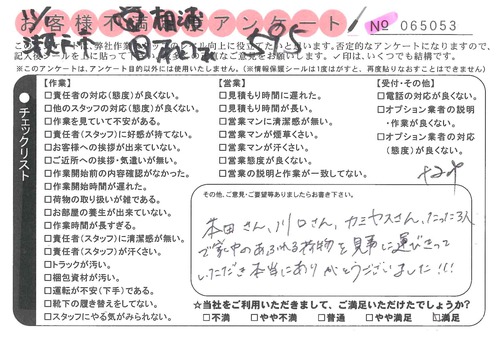 お客様不満足度アンケート
No 065053
このアンケートは、弊社作業スタッフのレベル向上に役立てたいと思います。否定的なアンケートになりますので、
※このアンケートは、アンケート目的以外には使用いたしません。(※情報保護シールは1度はがすと、再度貼りなおすことはできません)
チェックリスト
【作業】
□責任者の対応(態度)が良くない。
□他のスタッフの対応(態度)が良くない。
□作業を見ていて不安がある。
□責任者(スタッフ)に好感が持てない。
□お客様への挨拶が出来ていない。
□ご近所への挨拶・気遣いが無い。
□作業開始前の内容確認がなかった。
□作業開始時間が遅れた。
□荷物の取り扱いが雑である。
□お部屋の養生が出来ていない。
□作業時間が長すぎる。
□責任者(スタッフ)に清潔感が無い。
□責任者(スタッフ)が汗くさい。
□トラックが汚い。
□梱包資材が汚い。
□運転が不安(下手)である。
□靴下の履き替えをしてない。
□スタッフにやる気がみられない。
【営業】
□見積もり時間に遅れた。
□見積もり時間が長い。
□営業マンに清潔感が無い。
□営業マンが煙草くさい。
□営業マンが汗くさい。
□営業態度が良くない。
□営業の説明と作業が一致してない。
【受付・その他】
□電話の対応が良くない。
□オプション業者の説明
・作業が良くない。
□オプション業者の対応
(態度)が良くない。
その他、ご意見・ご要望等ありましたらお書き下さい。
本田さん、川口さん、カミヤスさん、たった3人
で家中のあふれる荷物を見事に運びきって
いただき本当にありがとうございました!!!
☆当社をご利用いただきまして、ご満足いただけたでしょうか?
□不満 □やや不満 □普通 □やや満足 □満足